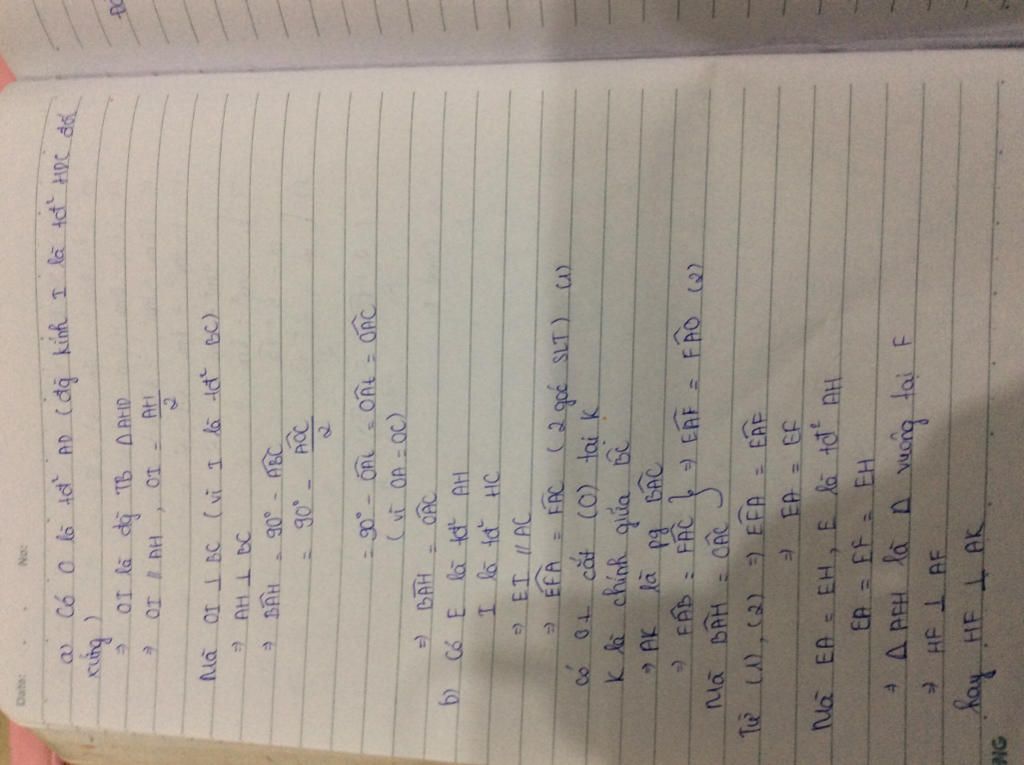 Date: . . No:
a) Có O là tđ² AD (đg kính I là tđ² HDC đối
xứng)
⇒ OI là đg TB ΔAHD
⇒ OI // AH, OI = AH/2
Mà OI ⊥ BC (vì I là tđ² BC)
⇒ AH ⊥ BC
⇒ BAH = 90° - ABC
= 90° - AOC/2
= 90° - OAt = OAt = OAC
(vì OA = OC)
⇒ BAH = OAC
b) Có E là tđ² AH
I là tđ² HC
⇒ EI // AC
⇒ EFA = FAC (2 góc SLT) (1)
Có cắt (O) tại K
K là chính giữa BC
⇒ AK là pg BAC
⇒ FAB = FAC } ⇒ EAF = FAO (2)
Mà BAH = OAC
Từ (1), (2) ⇒ EFA = EAF
⇒ EA = EF
Mà EA = EH, E là tđ² AH
EA = EF = EH
⇒ Δ AFH là Δ vuông tại F
⇒ HF ⊥ AF
hay HF ⊥ AK
NG